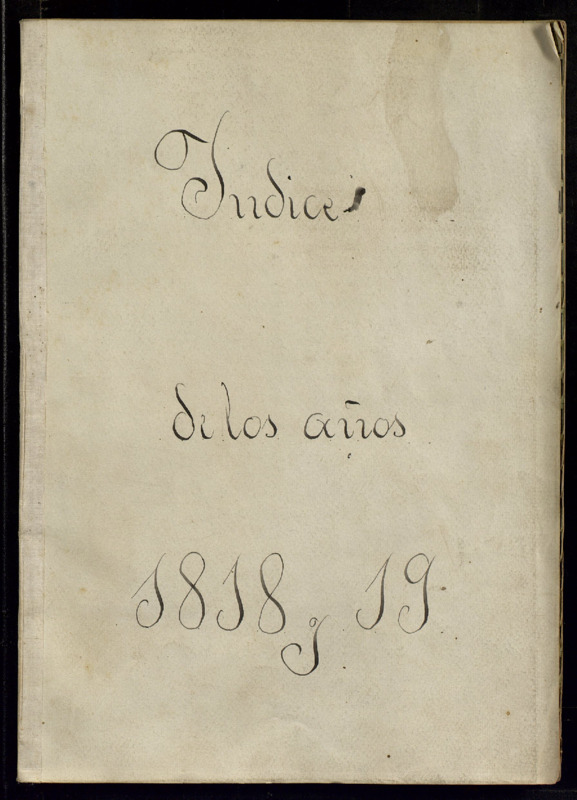 Indices
de los años
1818 y 19.